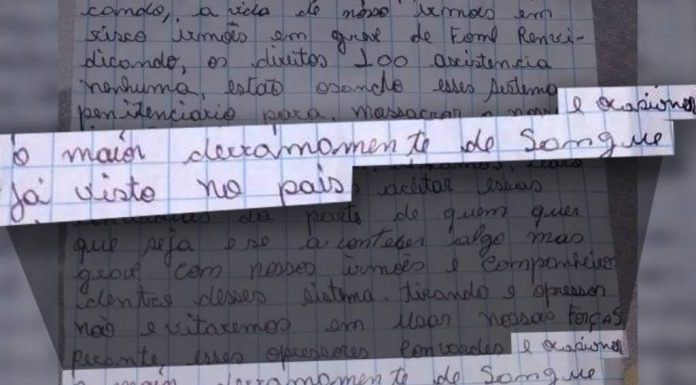 cando, a vida de nosso irmões em
risco irmões em grave de Fome Renvi-
dicando, os direitos 100 acistencia
nenhuma, estão osando esses sistema
penidenciario para, massacrar o
e ocasiones
o maior derramamente de Songue
já visto no pais
aceitar essas
da parte de quem quer
que seja e se acontecer algo mas
grave com nossos irmões e companheiros
dentro desses sistema. tirando e opressor
não evitaremos em usar nossas forças
perante esses opressores convardes e ocasiones
o maior derramamente de Songue